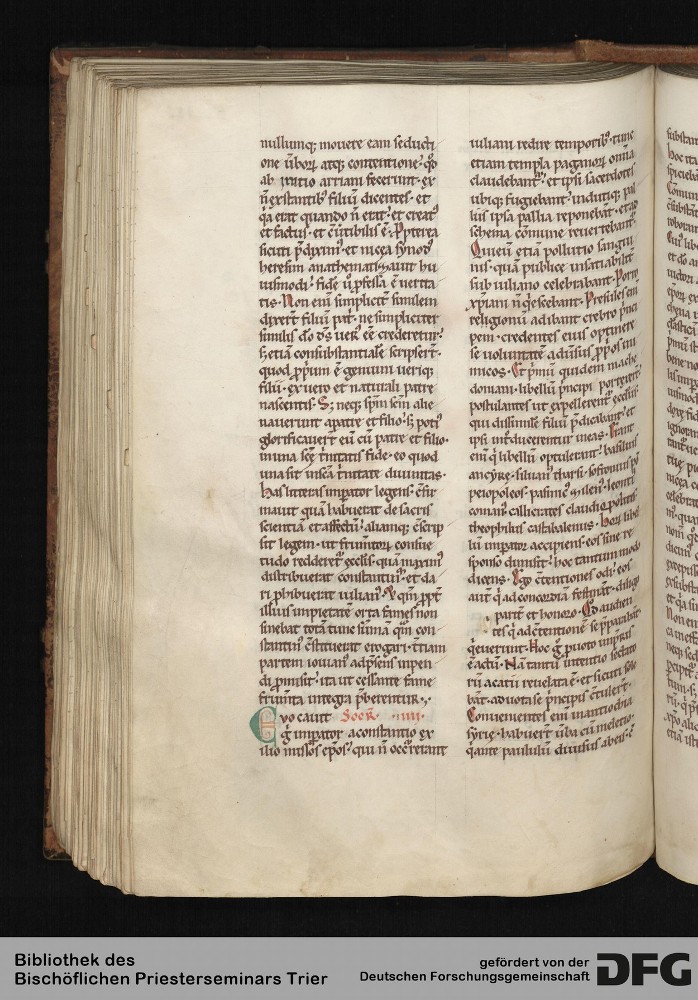 nullumq; mouere eam seducti
one ũboꝝ atq; contentione. qđ
ab initio arriani fecerunt. ex
ñ exstantibꝰ filiũ dicentes. et
q̃a erat quando ñ erat. et creatꝰ
et factus. et cũtibilis ẽ. Ppterea
sicuti p̃diximꝰ et nicea synodꝰ
heresim anathematizauit hu
iusmodi. fidẽ ũ p̃fessa ẽ uerita
tis. Non eni simplicit̃ similem
dixer̃t filiũ patri. ne simpliciter
similis đo d̃s uerꝰ eẽ crederetur.
s; etiã consubstantialẽ scripser̃t.
quod p̱prium ẽ genium ueriq;
filii. ex uero et naturali patre
nascentis. S; neq; sp̃m sc̃m alie
nauerunt a patre et filio. s; potiꝰ
glorificauer̃t eũ cũ patre et filio.
in una scẽ t̃nitatis fide. eo quod
una sit in sc̃a t̃nitate diuinitas.
Has litteras imp̱ator legens. c̃fir
mauit quã habuerat de sacris
scientiã et affectũ. aliamq; c̃scrip
sit legem. ut frum̃toꝝ consue
tudo redderet̃ ecclis. quã maximꝰ
distribuerat constantinꝰ. et da
ri p̱hibuerat iulianꝰ. & qm̃ p̱pt̃
illiꝰ impietatẽ orta fames non
sinebat totã tunc sũmã qm̃ con
stantinꝰ c̃stituerat erogari. t̃tiam
partem iouianꝰ ad p̱sens inpen
di p̱misit. ita ut cessante fame
frum̃ta integra p̱berentur.
Euocauit Socr̃. IIII.
g̃ imp̱ator a constantio ex
ilio missos ep̃os. qui ñ occ̃rerant
iuliani redire temporibꝰ. tunc
etiam templa paganoꝝ om̃ia
claudebant̃. et ipsi sacerdotes
ubiq; fugiebant. induti q; pal
liis ipsa pallia reponebãt. et ad
schema cõmune reuertebant̃.
Quieuit etiã pollutio sangui
nis. quã publice insatiabilit̃
sub iuliano celebrabant. Porro
xp̃iani ñ q̃escebant. Presules eni
religionũ adibant crebro p̃nci
pem. credentes eius optinere
se uoluntatẽ aduersus p̱p̱os ini
micos. Et p̃mũ quidem mache
doniani. libellũ p̃ncipi porrexer̃t.
postulantes ut expellerent̃ ecclis
qui dissimilẽ filiũ p̃dicabant. et
ipsi intducerentur in eas. Erant
eni q̃ libellũ optulerant. basilius
ancyre. siluanꝰ tharsi. sofronius po
peiopoleos. pasinicꝰ zelenꝰ. leontiꝰ
comanꝰ. callicrates claudiopolitꝰ.
theophilus castabalenus. Hoꝝ libel
lũ imp̱ator accipiens. eos sine re
sponso dimisit. hoc tantum modo
dicens. Ego c̃tentiones odi. eos
aut̃ q̃ ad concordiã festinãt. diligo
parit̃ et honoro. Q̃d audien
tes q̃ ad c̃tentionẽ se p̱parabant
q̃euerunt. Hoc g̃ p̱uoto imp̱ris
ẽ actũ. Nã tantũ intentio societa
rũ acatii reuelata ẽ. et sicuti sole
bãt. ad uota se p̃ncipis c̃tuler̃t.
Conuenientes eni in antiochia
syrie. habuer̃t ũba cũ meletio.
q̃ ante paululũ diuisus ab eis. ẽ
Bibliothek des
Bischöflichen Priesterseminars Trier
gefördert von der
Deutschen Forschungsgemeinschaft
DFG